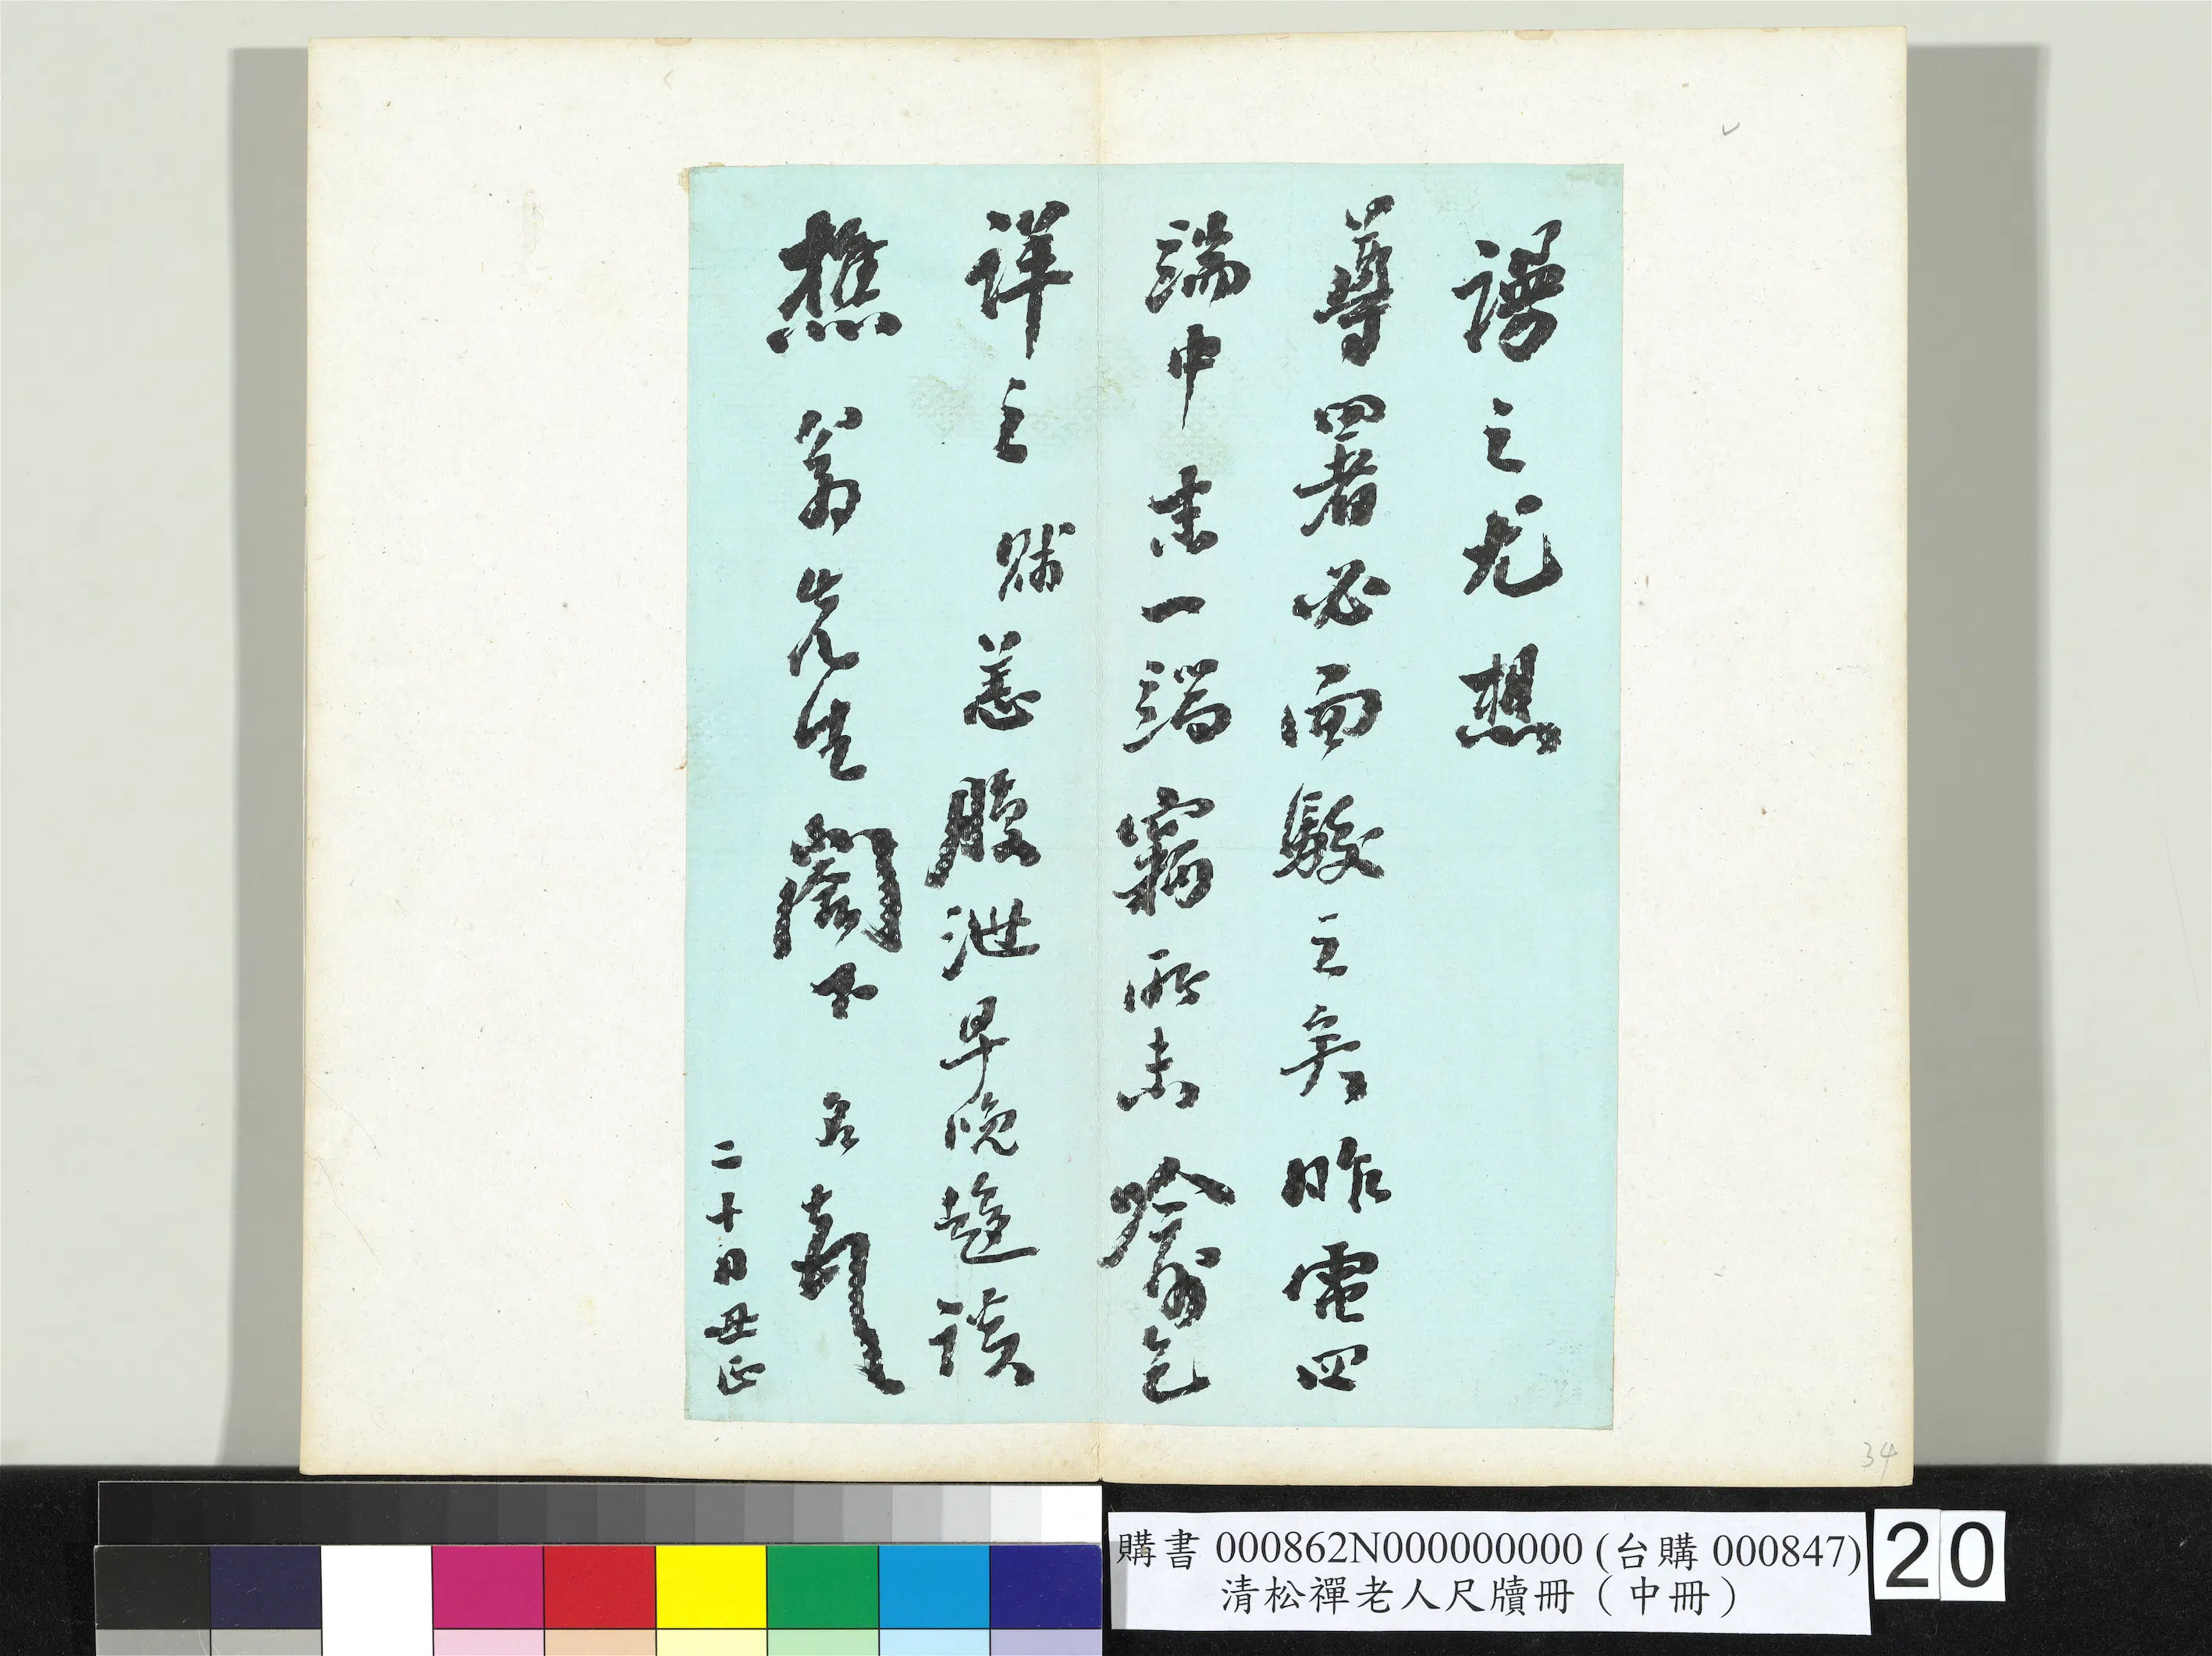 謾之尤想
尊署必面駁之矣昨電四
端中末一端竊所未喻乞
詳之賤恙腹泄早晚趨談
樵翁先生閣下 名頓
二十日丑正
34
購書 000862N000000000 (台購 000847)
清松禪老人尺牘冊（中冊）
20